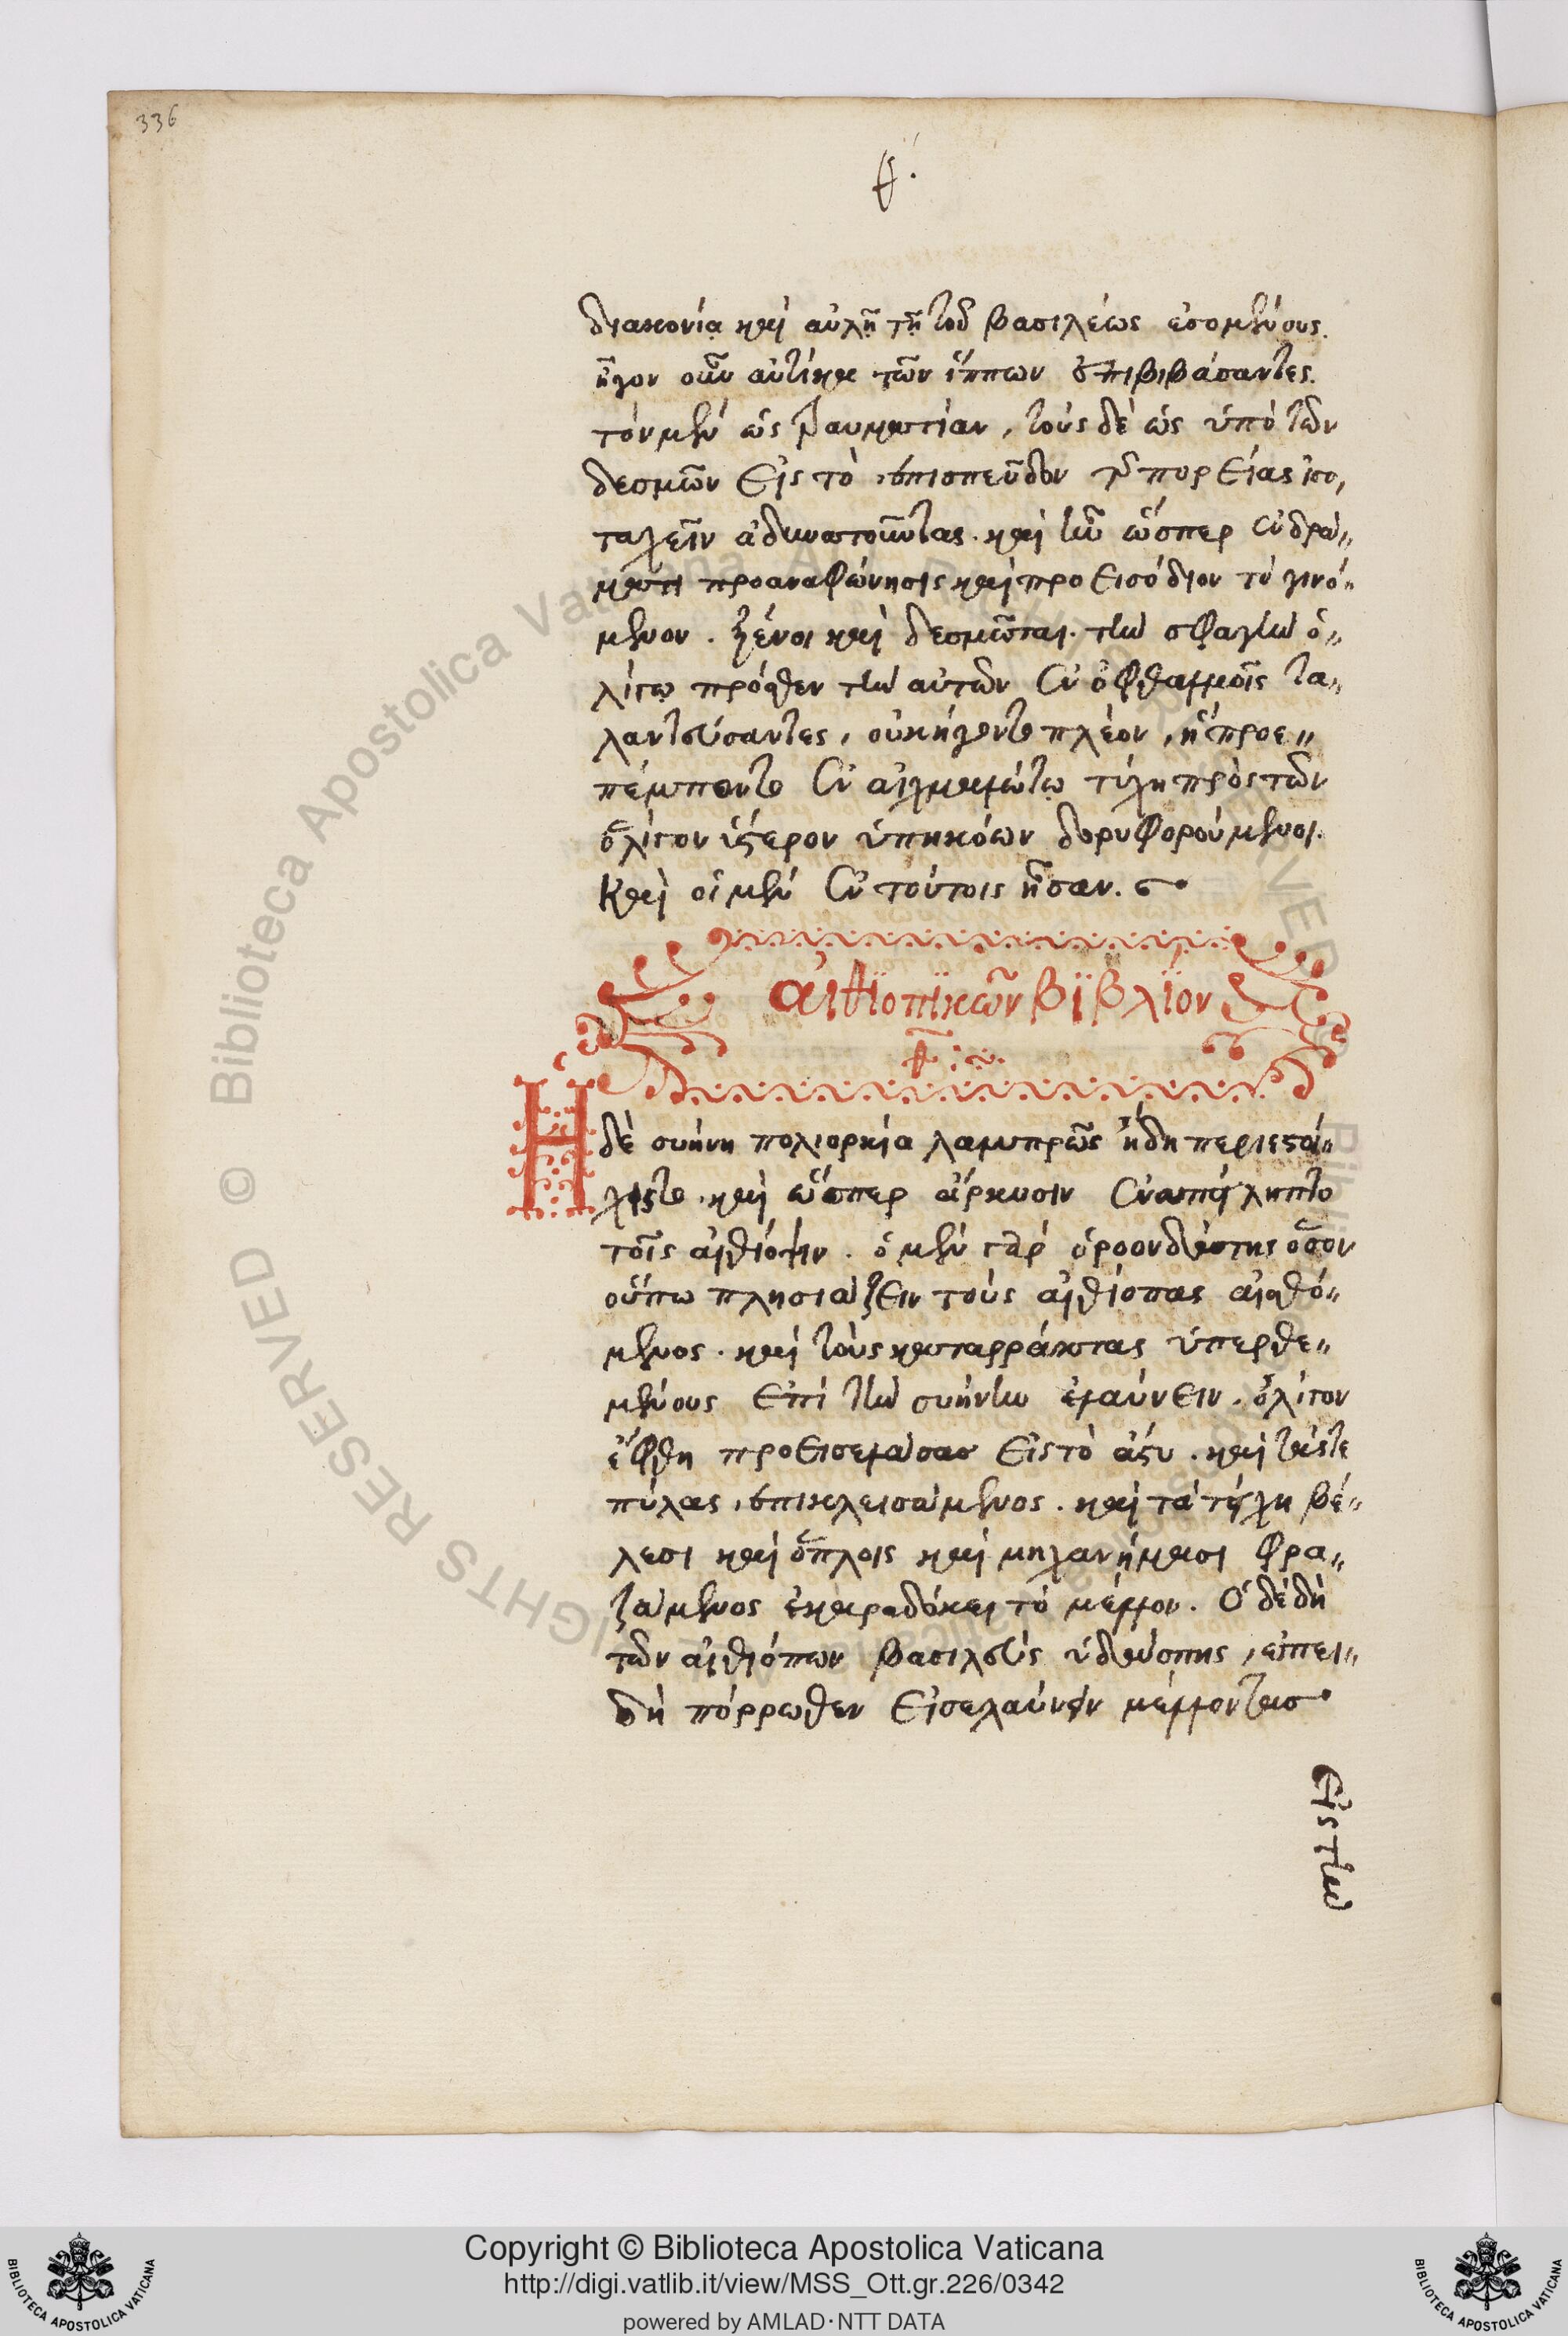 336
θ΄.
διακονίᾳ καὶ αὐλῇ τῇ τοῦ βασιλέως ἐσομένους.
ἦγον οὖν αὐτίκα τῶν ἵππων ἐπιβιβάσαντες.
τὸν μὲν ὡς τραυματίαν, τοὺς δὲ ὡς ὑπὸ τῶν
δεσμῶν εἰς τὸ ἐπισπεῦδον τῆς πορείας ἰσο,
ταχεῖν ἀδυνατοῦντας. καὶ ἦν ὥσπερ ἐν δρά„
ματι προαναφώνησις καὶ προεισόδιον τὸ γινό„
μενον. ξένοι καὶ δεσμῶται. τὴν σφαγὴν ὀ„
λίγῳ πρόσθεν τὴν αὑτῶν ἐν ὀφθαλμοῖς τα„
λαντεύσαντες, οὐκ ἤγοντο πλέον, ἢ προε„
πέμποντο ἐν αἰχμαλώτῳ τύχῃ πρὸς τῶν
ὀλίγον ὕστερον ὑπηκόων δορυφορούμενοι.
Καὶ οἱ μὲν ἐν τούτοις ἦσαν.
αἰθϊοπϊκῶν βϊβλϊον
θ:~
Ἡ δὲ συήνη πολιορκία λαμπρῶς ἤδη περιεστοί„
χιστο. καὶ ὥσπερ ἄρκυσιν ἐναπείληπτο
τοῖς αἰθίοψιν. ὁ μὲν γὰρ ὀροονδάτης ὅσον
οὔπω πλησιάζειν τοὺς αἰθίοπας αἰσθό„
μενος. καὶ τοὺς καταρράκτας ὑπερθε„
μένους ἐπὶ τὴν συήνην ἐλαύνειν. ὀλίγον
ἔφθη προεισελάσας εἰς τὸ ἄστυ. καὶ τάς τε
πύλας ἐπικλεισάμενος. καὶ τὰ τείχη βέ„
λεσι καὶ ὅπλοις καὶ μηχανήμασι φρα„
ξάμενος ἐκαραδόκει τὸ μέλλον. Ὁ δὲ δὴ
τῶν αἰθιόπων βασιλεὺς ὑδάσπης, ἐπει„
δὴ πόρρωθεν εἰσελαύνειν μέλλοντας
εἰς τὴν
Copyright © Biblioteca Apostolica Vaticana
http://digi.vatlib.it/view/MSS_Ott.gr.226/0342
powered by AMLAD·NTT DATA
BIBLIOTECA APOSTOLICA VATICANA
BIBLIOTECA APOSTOLICA VATICANA